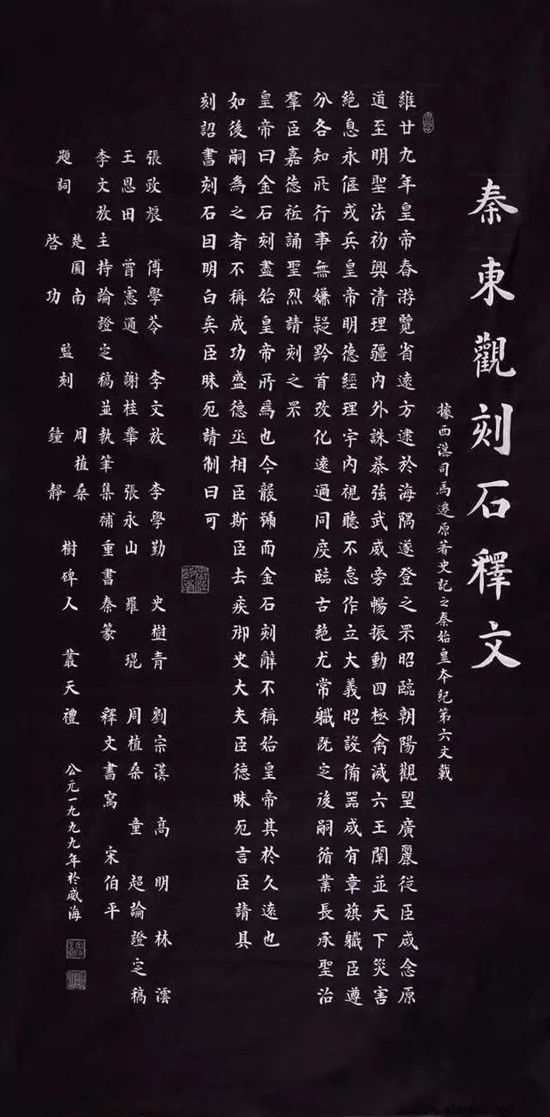 秦東觀刻石釋文
據西漢司馬遷原著史記之秦始皇本紀第六文載
維廿九年皇帝春游覽省遠方逮於海隅遂登之罘昭臨朝陽觀望廣麗從臣咸念原
道至明聖法初興清理疆内外誅暴強武威旁暢振動四極禽滅六王闡並天下災害
絕息永偃戎兵皇帝明德經理宇内視聽不怠作立大義昭設備器咸有章旗職臣遵
分各知所行事無嫌疑黔首改化遠邇同度臨古絕尤常職既定後嗣循業長承聖治
羣臣嘉德祗誦聖烈請刻之罘
皇帝曰金石刻盡始皇帝所爲也今襲號而金石刻辭不稱始皇帝其於久遠也
如後嗣為之者不稱成功盛德丞相臣斯臣去疾御史大夫臣德昧死言臣請具
刻詔書刻石因明白矣臣昧死請制曰可
張政烺 傅學苓 李文放 李學勤 史樹青 劉宗漢 高明 林澐
王恩田 曾憲通 謝桂華 張永山 羅琨 周植桑 童超論證定稿
李文放主持論證定稿並執筆集補重書秦篆 釋文書寫 宋伯平
題詞 楚圖南 啓功 監刻 周植桑 鐘靜 樹碑人 叢天禮 公元一九九九年於威海